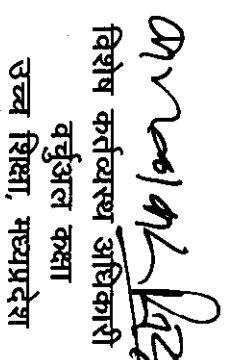 विशेष कर्तव्यस्थ अधिकारी
वर्चुअल कक्षा
उच्च शिक्षा, मध्यप्रदेश